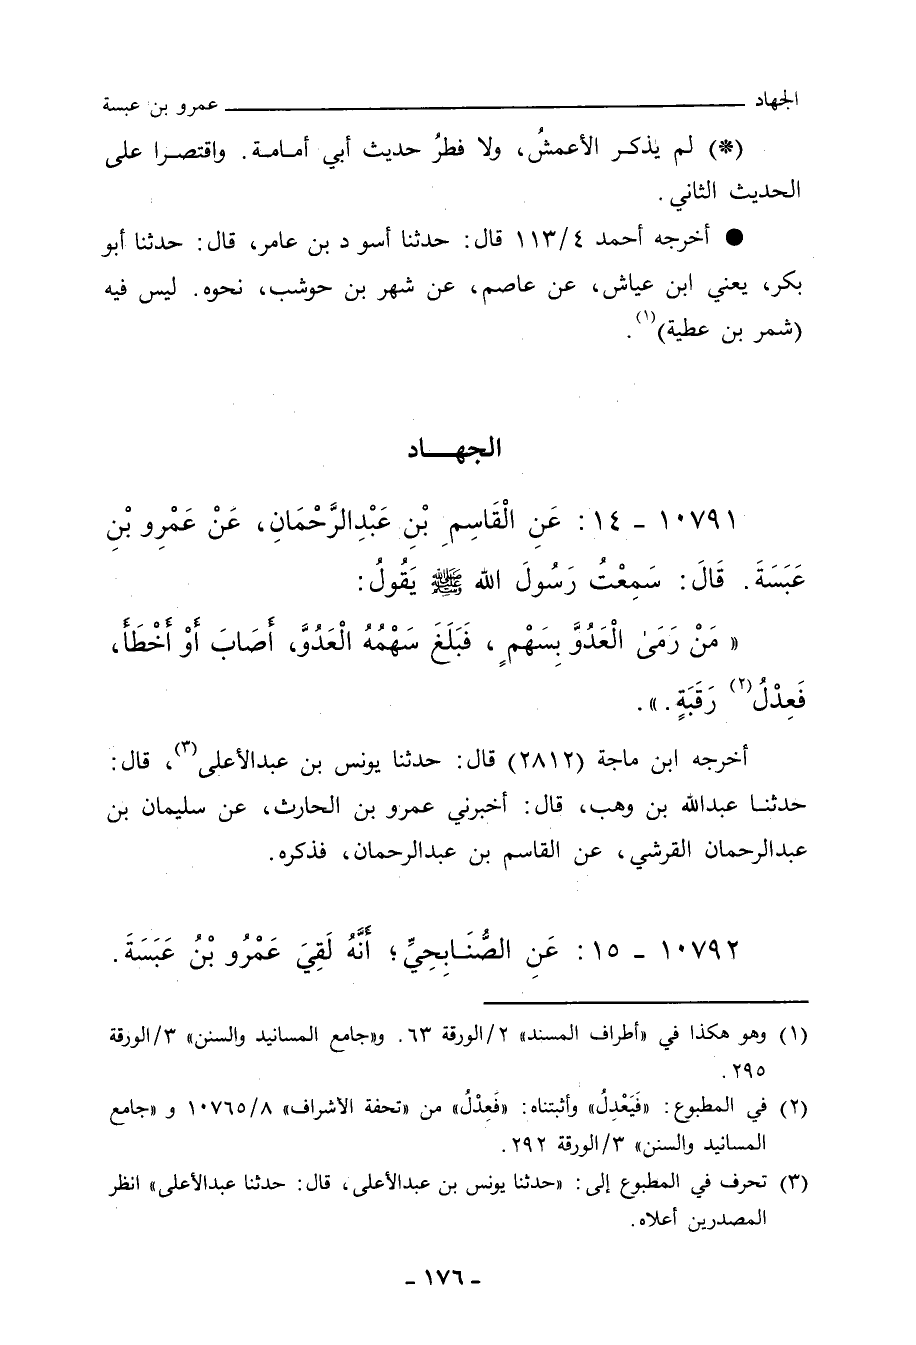 الجهاد ــــــــــــــــــــ عمرو بن عبسة
(*) لم يذكر الأعمشُ، ولا فطرُ حديث أبي أمامة. واقتصرا على
الحديث الثاني.
● أخرجه أحمد ٤/ ١١٣ قال: حدثنا أسو د بن عامر، قال: حدثنا أبو
بكر، يعني ابن عياش، عن عاصم، عن شهر بن حوشب، نحوه. ليس فيه
(شمر بن عطية)(١).
الجهـــاد
١٠٧٩١ - ١٤: عَنِ الْقَاسِمِ بْنِ عَبْدِالرَّحْمَانِ، عَنْ عَمْرِو بْنِ
عَبَسَةَ. قَالَ: سَمِعْتُ رَسُولَ الله ﷺ يَقُولُ:
« مَنْ رَمَىٰ الْعَدُوَّ بِسَهْمٍ ، فَبَلَغَ سَهْمُهُ الْعَدُوَّ، أَصَابَ أَوْ أَخْطَأَ،
فَعِدْلُ(٢) رَقَبَةٍ. ».
أخرجه ابن ماجة (٢٨١٢) قال: حدثنا يونس بن عبدالأعلى(٣)، قال:
حدثنـا عبدالله بن وهب، قال: أخبرني عمرو بن الحارث، عن سليمان بن
عبدالرحمان القرشي، عن القاسم بن عبدالرحمان، فذكره.
١٠٧٩٢ - ١٥: عَنِ الصُّنَـابِحِيِّ؛ أَنَّهُ لَقِيَ عَمْرُو بْنُ عَبَسَةَ.
(١) وهو هكذا في «أطراف المسند» ٢/الورقة ٦٣. و«جامع المسانيد والسنن» ٣/الورقة
٢٩٥.
(٢) في المطبوع: «فَيَعْدِلُ» وأثبتناه: «فَعِدْلُ» من «تحفة الأشراف» ١٠٧٦٥/٨ و «جامع
المسانيد والسنن» ٣/الورقة ٢٩٢.
(٣) تحرف في المطبوع إلى: «حدثنا يونس بن عبدالأعلى، قال: حدثنا عبدالأعلى» انظر
المصدرين أعلاه.
- ١٧٦ -